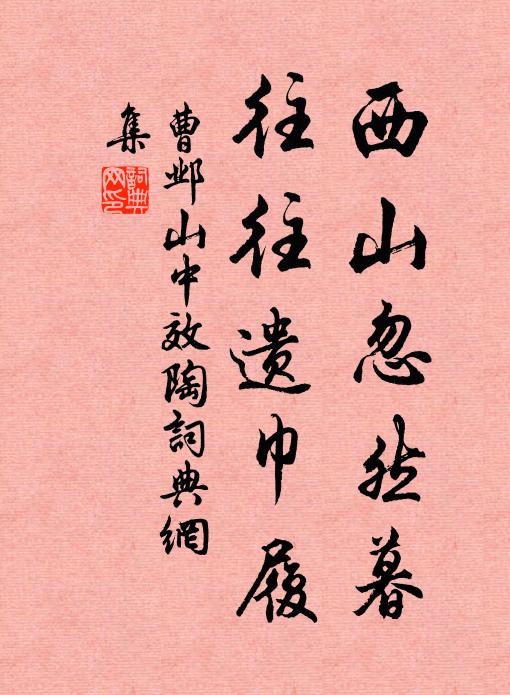 西山忽然暮
往往遗巾履
曹邺山中效陶詞典網
集
詞典
网印